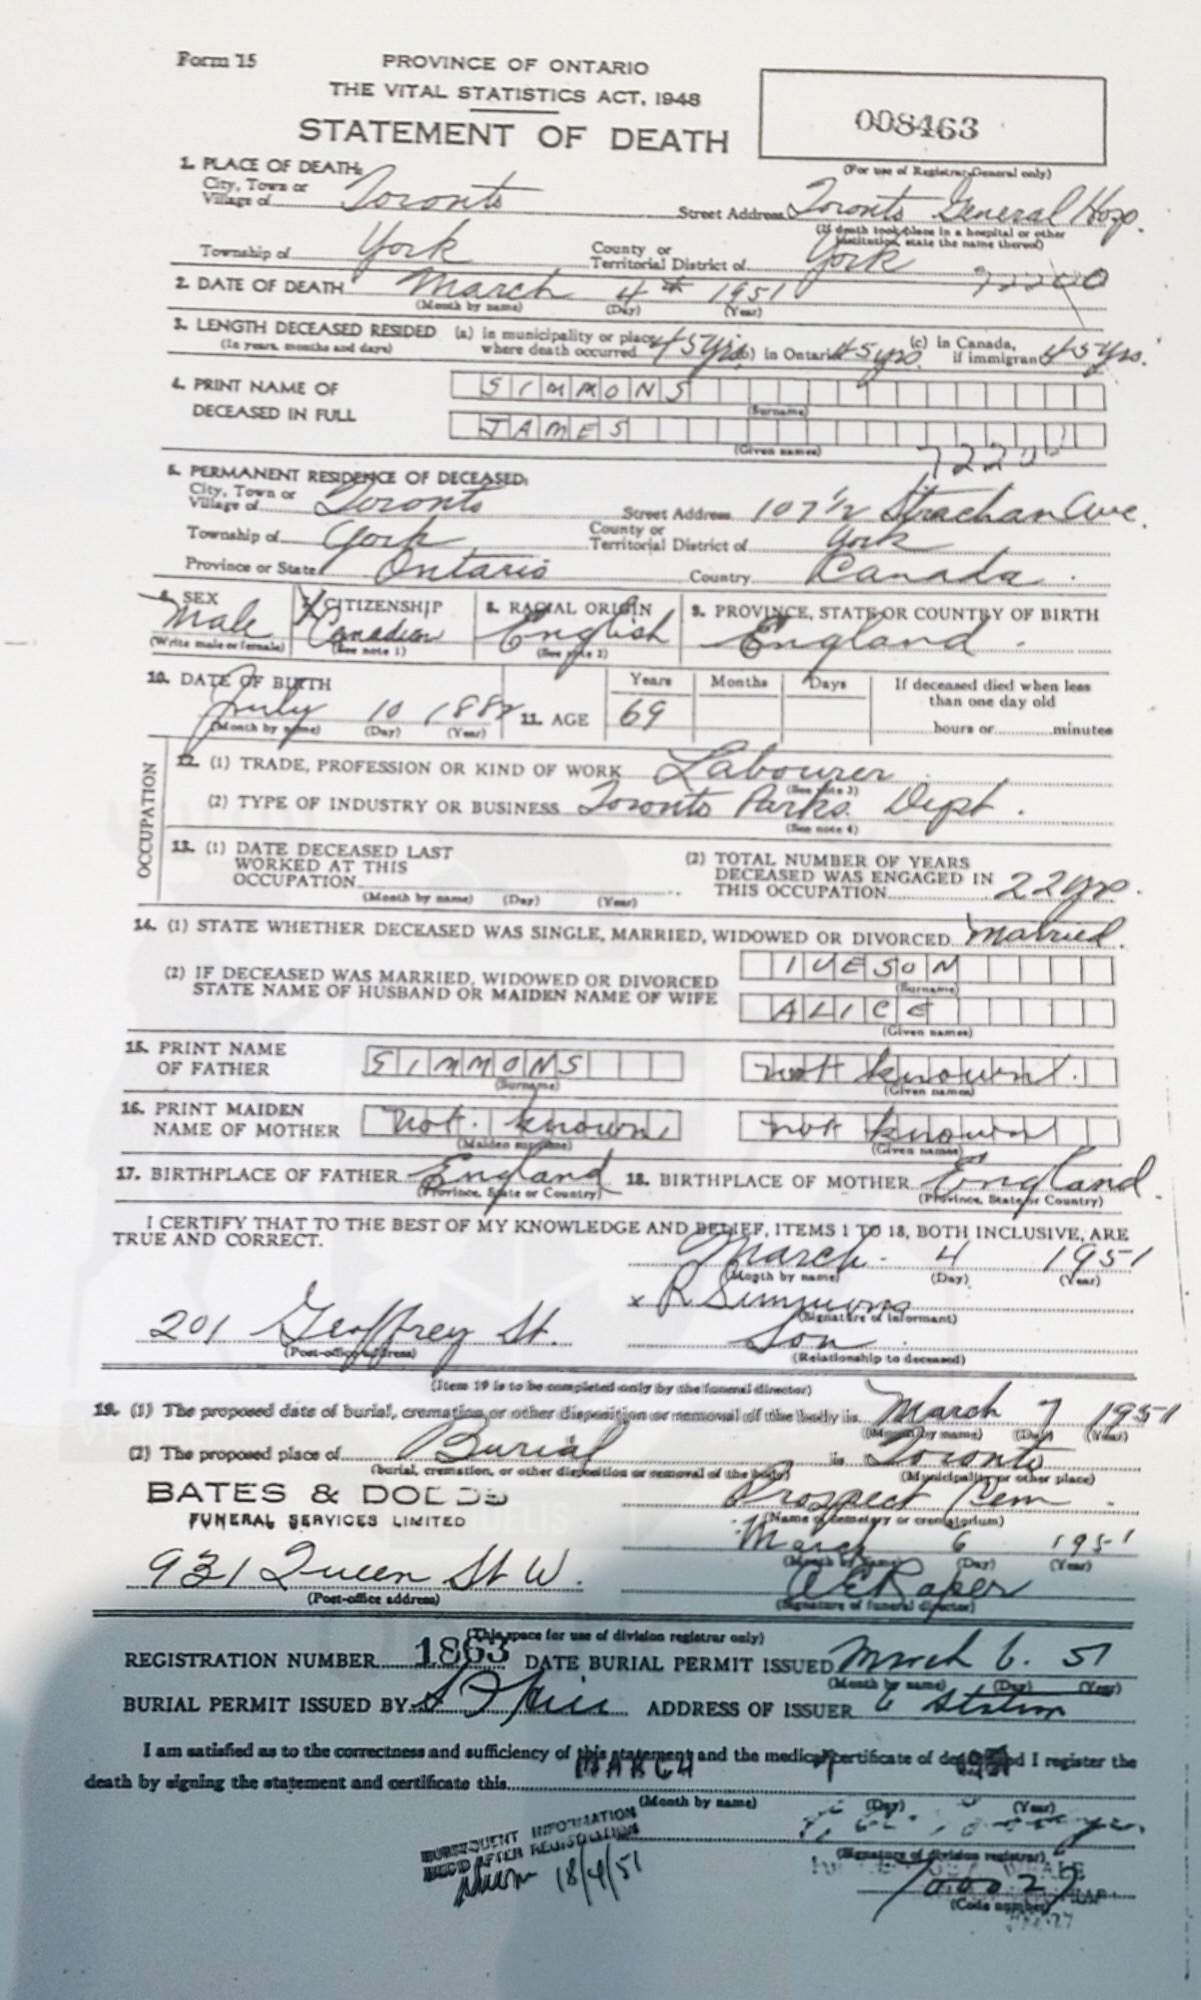 Form 15
PROVINCE OF ONTARIO
THE VITAL STATISTICS ACT, 1948
STATEMENT OF DEATH
008463
(For use of Registrar General only)
1. PLACE OF DEATH:
City, Town or Village of Toronto Street Address Toronto General Hosp.
(If death took place in a hospital or other institution, state the name thereof)
Township of York County or Territorial District of York
2. DATE OF DEATH March 4th 1951
(Month by name) (Day) (Year)
3. LENGTH DECEASED RESIDED (a) in municipality or place where death occurred 45 yrs (b) in Ontario 45 yrs. (c) in Canada, if immigrant 45 yrs.
(In years, months and days)
4. PRINT NAME OF DECEASED IN FULL
SIMMONS
(Surname)
JAMES
(Given names)
5. PERMANENT RESIDENCE OF DECEASED:
City, Town or Village of Toronto Street Address 107 1/2 Strachan Ave.
Township of York County or Territorial District of York
Province or State Ontario Country Canada
6. SEX 7. CITIZENSHIP 8. RACIAL ORIGIN 9. PROVINCE, STATE OR COUNTRY OF BIRTH
Male Canadian English England
(Write male or female) (See note 1) (See note 2)
10. DATE OF BIRTH July 10 1882
(Month by name) (Day) (Year)
11. AGE Years Months Days If deceased died when less than one day old
69 hours or minutes
OCCUPATION
12. (1) TRADE, PROFESSION OR KIND OF WORK Labourer
(See note 3)
(2) TYPE OF INDUSTRY OR BUSINESS Toronto Parks. Dept.
(See note 4)
13. (1) DATE DECEASED LAST WORKED AT THIS OCCUPATION
(Month by name) (Day) (Year)
(2) TOTAL NUMBER OF YEARS DECEASED WAS ENGAGED IN THIS OCCUPATION 22 yrs.
14. (1) STATE WHETHER DECEASED WAS SINGLE, MARRIED, WIDOWED OR DIVORCED Married.
(2) IF DECEASED WAS MARRIED, WIDOWED OR DIVORCED STATE NAME OF HUSBAND OR MAIDEN NAME OF WIFE
IVESON
(Surname)
ALICE
(Given names)
15. PRINT NAME OF FATHER SIMMONS not known.
(Surname) (Given names)
16. PRINT MAIDEN NAME OF MOTHER not. known not known
(Maiden surname) (Given names)
17. BIRTHPLACE OF FATHER England 18. BIRTHPLACE OF MOTHER England.
(Province, State or Country) (Province, State or Country)
I CERTIFY THAT TO THE BEST OF MY KNOWLEDGE AND BELIEF, ITEMS 1 TO 18, BOTH INCLUSIVE, ARE
TRUE AND CORRECT.
March 4 1951
(Month by name) (Day) (Year)
x R Simmons
(Signature of informant)
201 Geoffrey St. Son
(Post-office address) (Relationship to deceased)
(Item 19 is to be completed only by the funeral director)
19. (1) The proposed date of burial, cremation or other disposition or removal of the body is March 7 1951
(Month by name) (Day) (Year)
(2) The proposed place of Burial is Toronto
(burial, cremation, or other disposition or removal of the body) (Municipality or other place)
BATES & DODDS
FUNERAL SERVICES LIMITED
Prospect Cem.
(Name of cemetery or crematorium)
March 6 1951
(Month by name) (Day) (Year)
931 Queen St W.
(Post-office address)
A E Raper
(Signature of funeral director)
(This space for use of division registrar only)
REGISTRATION NUMBER 1863 DATE BURIAL PERMIT ISSUED March 6. 51
(Month by name) (Day) (Year)
BURIAL PERMIT ISSUED BY ADDRESS OF ISSUER 6 Station
I am satisfied as to the correctness and sufficiency of this statement and the medical certificate of death and I register the
death by signing the statement and certificate this MARCH 7 1951
(Month by name) (Day) (Year)
(Signature of division registrar)
SUBSEQUENT INFORMATION
REC'D AFTER REGISTRATION
18/4/51
(Code number)